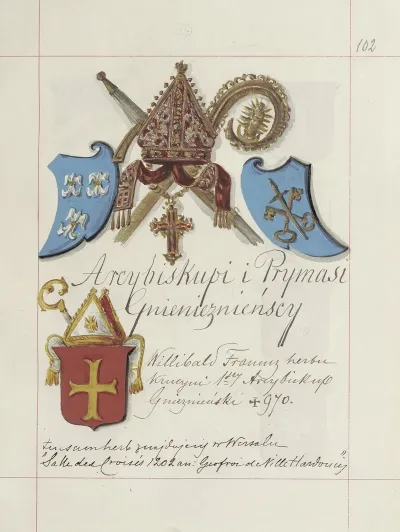 102
Arcybiskupi i Prymasi
Gnienieznieńscy
Willibald Francuz herbu
1szy Arcybiskup
Gnieznieński ✠ 970.
herb znajdujemy w Wersalu
"Salle des Croisés 1202 an: Geofroi de Ville Hardouin"